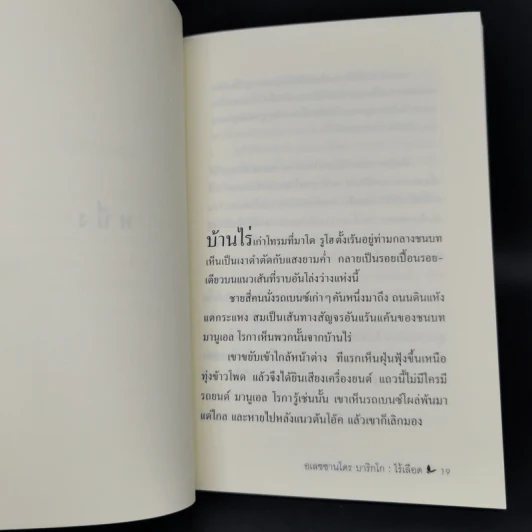 บ้านไร่เก่าโทรมที่มาโต รูโฮตั้งเร้นอยู่ท่ามกลางชนบท
เห็นเป็นเงาดำตัดกับแสงยามค่ำ กลายเป็นรอยเปื้อนรอย-
เดียวบนแนวเส้นที่ราบอันโล่งว่างแห่งนี้
ชายสี่คนนั่งรถเบนซ์เก่าๆ คันหนึ่งมาถึง ถนนดินแห้ง
แตกระแหง สมเป็นเส้นทางสัญจรอันแร้นแค้นของชนบท
มานูเอล โรกาเห็นพวกนั้นจากบ้านไร่
เขาขยับเข้าใกล้หน้าต่าง ทีแรกเห็นฝุ่นฟุ้งขึ้นเหนือ
ทุ่งข้าวโพด แล้วจึงได้ยินเสียงเครื่องยนต์ แถวนี้ไม่มีใครมี
รถยนต์ มานูเอล โรการู้เช่นนั้น เขาเห็นรถเบนซ์โผล่พ้นมา
แต่ไกล และหายไปหลังแนวต้นโอ๊ค แล้วเขาก็เลิกมอง
อเลซซานโดร บาริกโก : ไร้เลือด 19